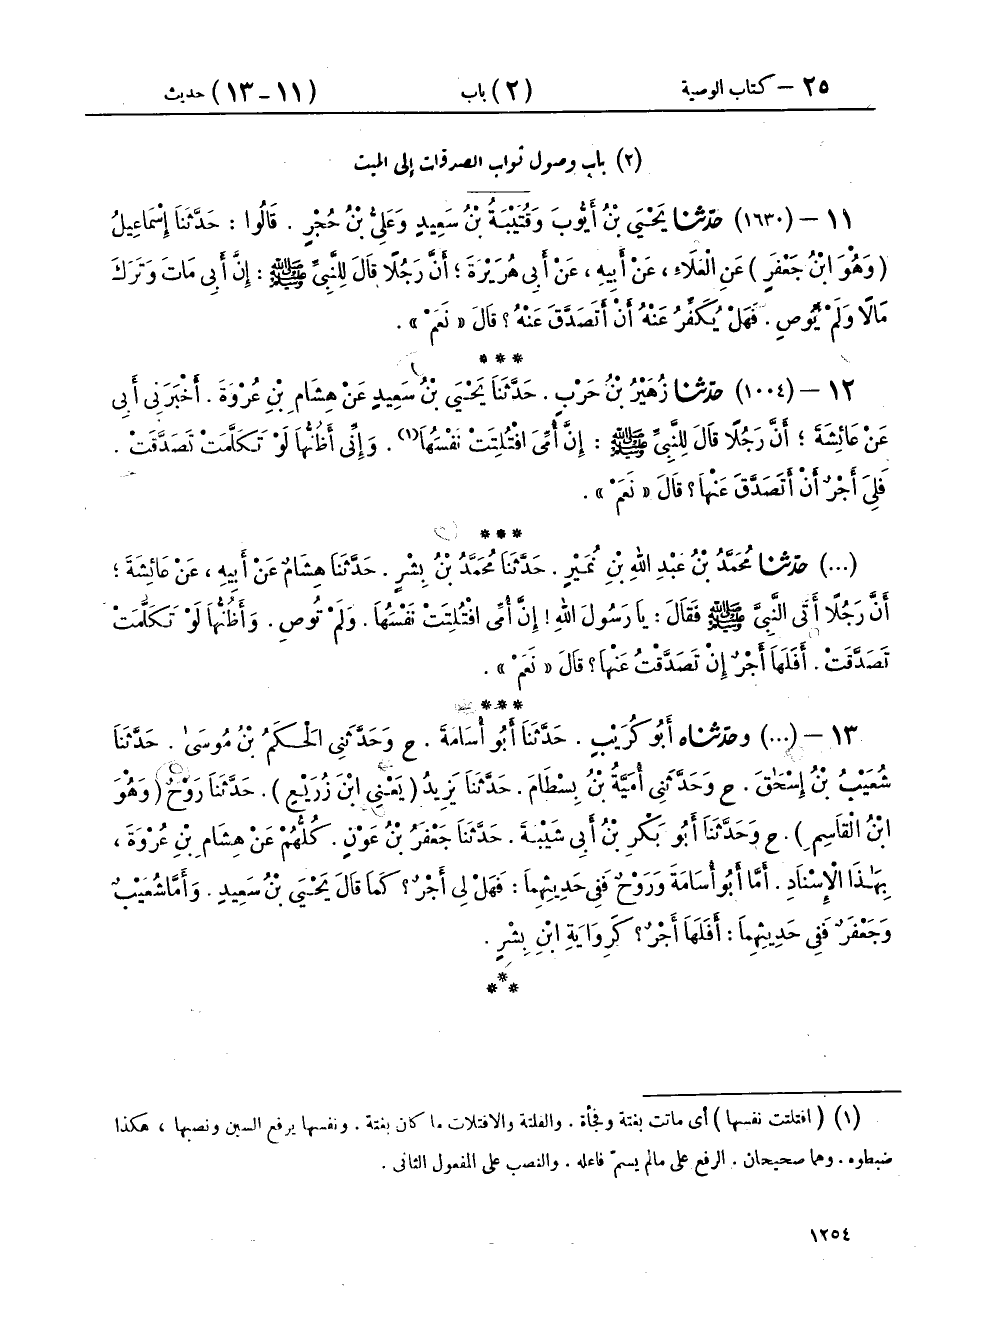 ٢٥ – كتاب الوصية (٢) باب (١١ – ١٣) حديث
(٢) باب وصول ثواب الصدقات إلى الميت
١١ – (١٦٣٠) حَدَّثَنَا يَحْيَى بْنُ أَيُّوبَ وَقُتَيْبَةُ بْنُ سَعِيدٍ وَعَلِىُّ بْنُ حُجْرٍ . قَالُوا : حَدَّثَنَا إِسْمَاعِيلُ
( وَهُوَ ابْنُ جَعْفَرٍ ) عَنِ الْعَلَاءِ ، عَنْ أَبِيهِ ، عَنْ أَبِى هُرَيْرَةَ ؛ أَنَّ رَجُلًا قَالَ لِلنَّبِىِّ ﷺ : إِنَّ أَبِى مَاتَ وَتَرَكَ
مَالًا وَلَمْ يُوصِ . فَهَلْ يُكَفِّرُ عَنْهُ أَنْ أَتَصَدَّقَ عَنْهُ ؟ قَالَ « نَعَمْ » .
***
١٢ – (١٠٠٤) حَدَّثَنَا زُهَيْرُ بْنُ حَرْبٍ . حَدَّثَنَا يَحْيَى بْنُ سَعِيدٍ عَنْ هِشَامِ بْنِ عُرْوَةَ . أَخْبَرَنِى أَبِى
عَنْ عَائِشَةَ ؛ أَنَّ رَجُلًا قَالَ لِلنَّبِىِّ ﷺ : إِنَّ أُمِّىَ افْتُلِتَتْ نَفْسُهَا(١) . وَإِنِّى أَظُنُّهَا لَوْ تَكَلَّمَتْ تَصَدَّقَتْ .
فَلِىَ أَجْرٌ أَنْ أَتَصَدَّقَ عَنْهَا ؟ قَالَ « نَعَمْ » .
***
(...) حَدَّثَنَا مُحَمَّدُ بْنُ عَبْدِ اللهِ بْنِ نُمَيْرٍ . حَدَّثَنَا مُحَمَّدُ بْنُ بِشْرٍ . حَدَّثَنَا هِشَامٌ عَنْ أَبِيهِ ، عَنْ عَائِشَةَ ؛
أَنَّ رَجُلًا أَتَى النَّبِىَّ ﷺ فَقَالَ : يَا رَسُولَ اللهِ ! إِنَّ أُمِّىَ افْتُلِتَتْ نَفْسُهَا . وَلَمْ تُوصِ . وَأَظُنُّهَا لَوْ تَكَلَّمَتْ
تَصَدَّقَتْ . أَفَلَهَا أَجْرٌ إِنْ تَصَدَّقْتُ عَنْهَا ؟ قَالَ « نَعَمْ » .
***
١٣ – (...) وحَدَّثَنَاه أَبُو كُرَيْبٍ . حَدَّثَنَا أَبُو أُسَامَةَ . ح وَحَدَّثَنِى الْحَكَمُ بْنُ مُوسَىٰ . حَدَّثَنَا
شُعَيْبُ بْنُ إِسْحَٰقَ . ح وَحَدَّثَنِى أُمَيَّةُ بْنُ بِسْطَامَ . حَدَّثَنَا يَزِيدُ ( يَعْنِى ابْنَ زُرَيْعٍ ) . حَدَّثَنَا رَوْحٌ ( وَهُوَ
ابْنُ الْقَاسِمِ ) . ح وَحَدَّثَنَا أَبُو بَكْرِ بْنُ أَبِى شَيْبَةَ . حَدَّثَنَا جَعْفَرُ بْنُ عَوْنٍ . كُلُّهُمْ عَنْ هِشَامِ بْنِ عُرْوَةَ ،
بِهَٰذَا الْإِسْنَادِ . أَمَّا أَبُو أُسَامَةَ وَرَوْحٌ فَفِى حَدِيثِهِمَا : فَهَلْ لِى أَجْرٌ ؟ كَمَا قَالَ يَحْيَى بْنُ سَعِيدٍ . وَأَمَّا شُعَيْبٌ
وَجَعْفَرٌ فَفِى حَدِيثِهِمَا : أَفَلَهَا أَجْرٌ ؟ كَرِوَايَةِ ابْنِ بِشْرٍ .
***
(١) ( افتلتت نفسها ) أى ماتت بغتة وفجأة . والفلتة والافتلات ما كان بغتة . ونفسها برفع السين ونصبها ، هكذا
ضبطوه . وهما صحيحان . الرفع على مالم يسمّ فاعله . والنصب على المفعول الثانى .
١٢٥٤